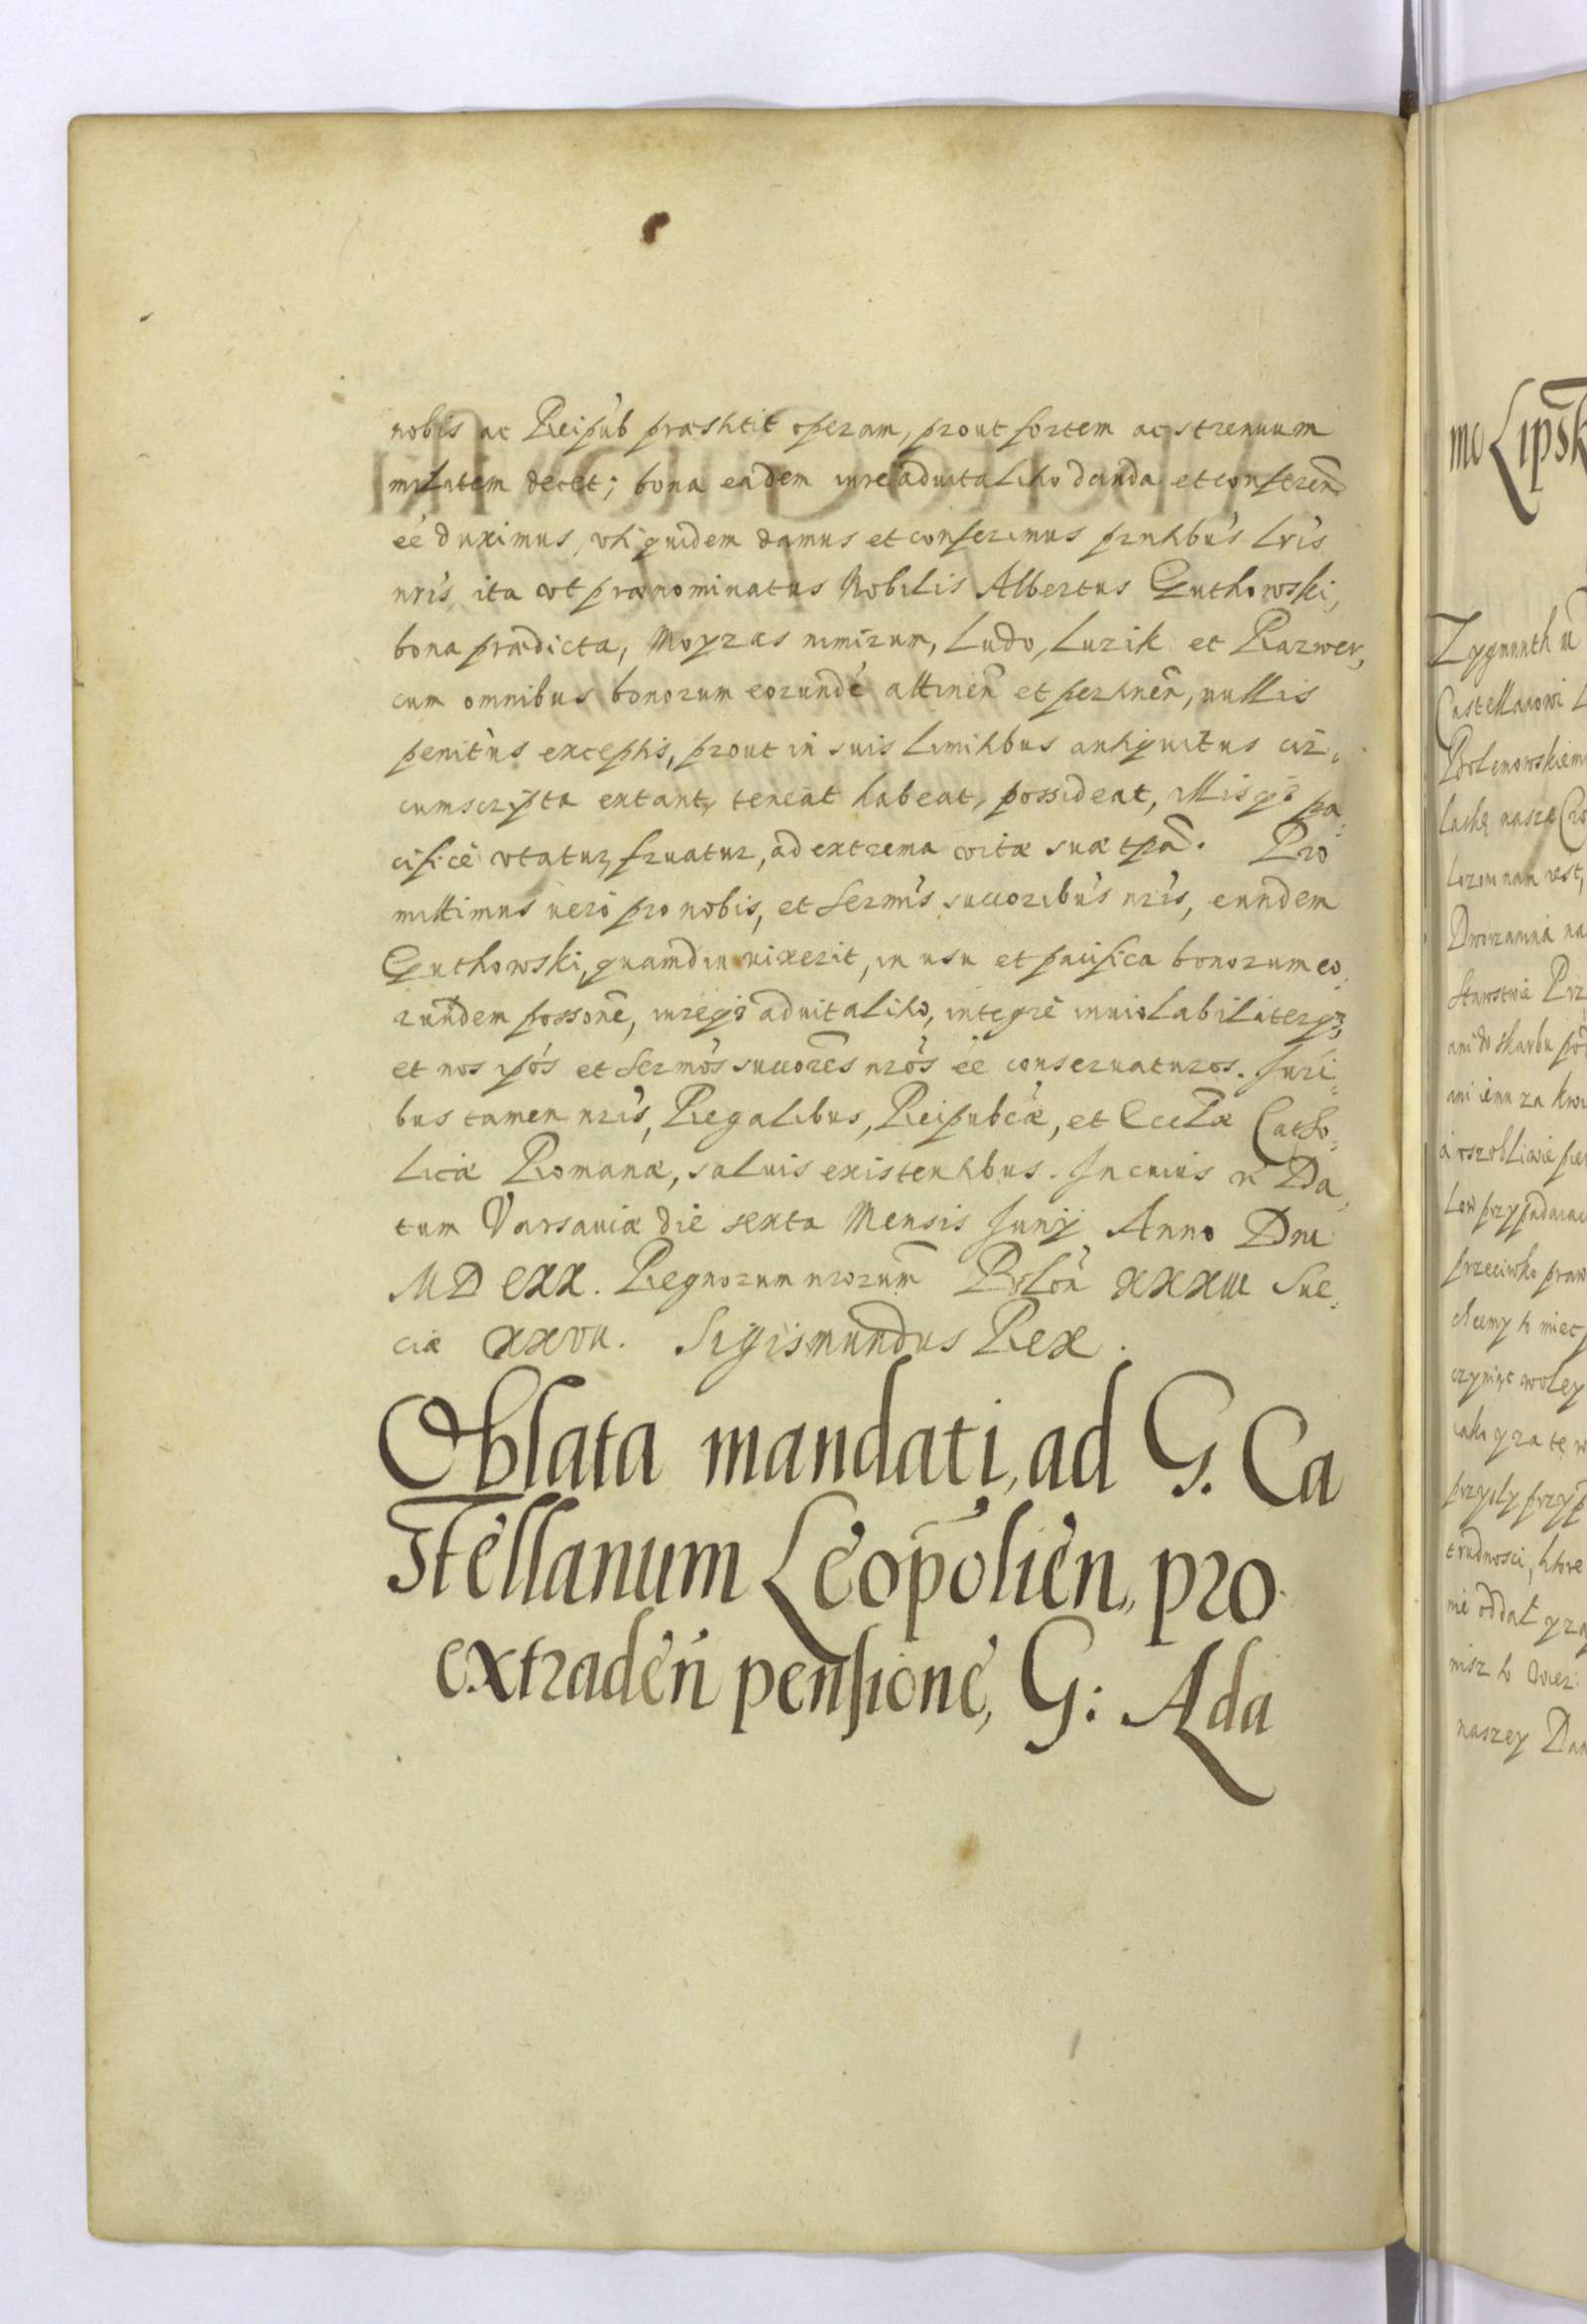 nobis ac Reipub præstitit operam, prout fortem ac strenuum
militem decet; bona eadem iure aduitalitio danda et conferen
eé duximus, vti quidem damus et conferimus pntibus lris
nris, ita vt prænominatus Nobilis Albertus Guthowski,
bona prædicta, Moyzas nimirum, Ludo, Luzik et Razwer,
cum omnibus bonorum eorundé attinen et pertinen, nullis
penitus exceptis, prout in suis limitibus antiquitus cir,
cumscripta extant, teneat habeat, possideat, illisq3 pa:
cificè vtatur, fruatur, ad extrema vitæ suæ tpa. Pro
mittimus uerò pro nobis, et Sermis succoribus nris, eundem
Guthowski, quamdiu uixerit, in usu et pacifica bonorum eo:
rundem possone, iureq3 aduitalitio, integrè inuiolabiliterq3,
et nos ipós et Sermos succores nros eé conseruaturos. Juri:
bus tamen nris, Regalibus, Reipubcæ, et Eccliæ Catho:
licæ Romanæ, saluis existentibus. In cuius r̃ Da,
tum Varsauiæ die sexta Mensis Junij Anno Dni
MDCXX. Regnorum nrorum Polon XXXIII Sue:
ciæ XXVII. Sigismundus Rex.
Oblata mandati, ad G. Ca
stellanum Leopolien, pro
extraden pensione, G: Ada
mo Lipsk
Zygmunth
Castellanowi L
laskę naszę
Dworzanina na
ani do skarbu
ani iemu za
Low przypadaiac
przeciwko praw
chcemy to miec
czyniąc woley
trudnosci, ktore
nie oddał y
naszey Dan